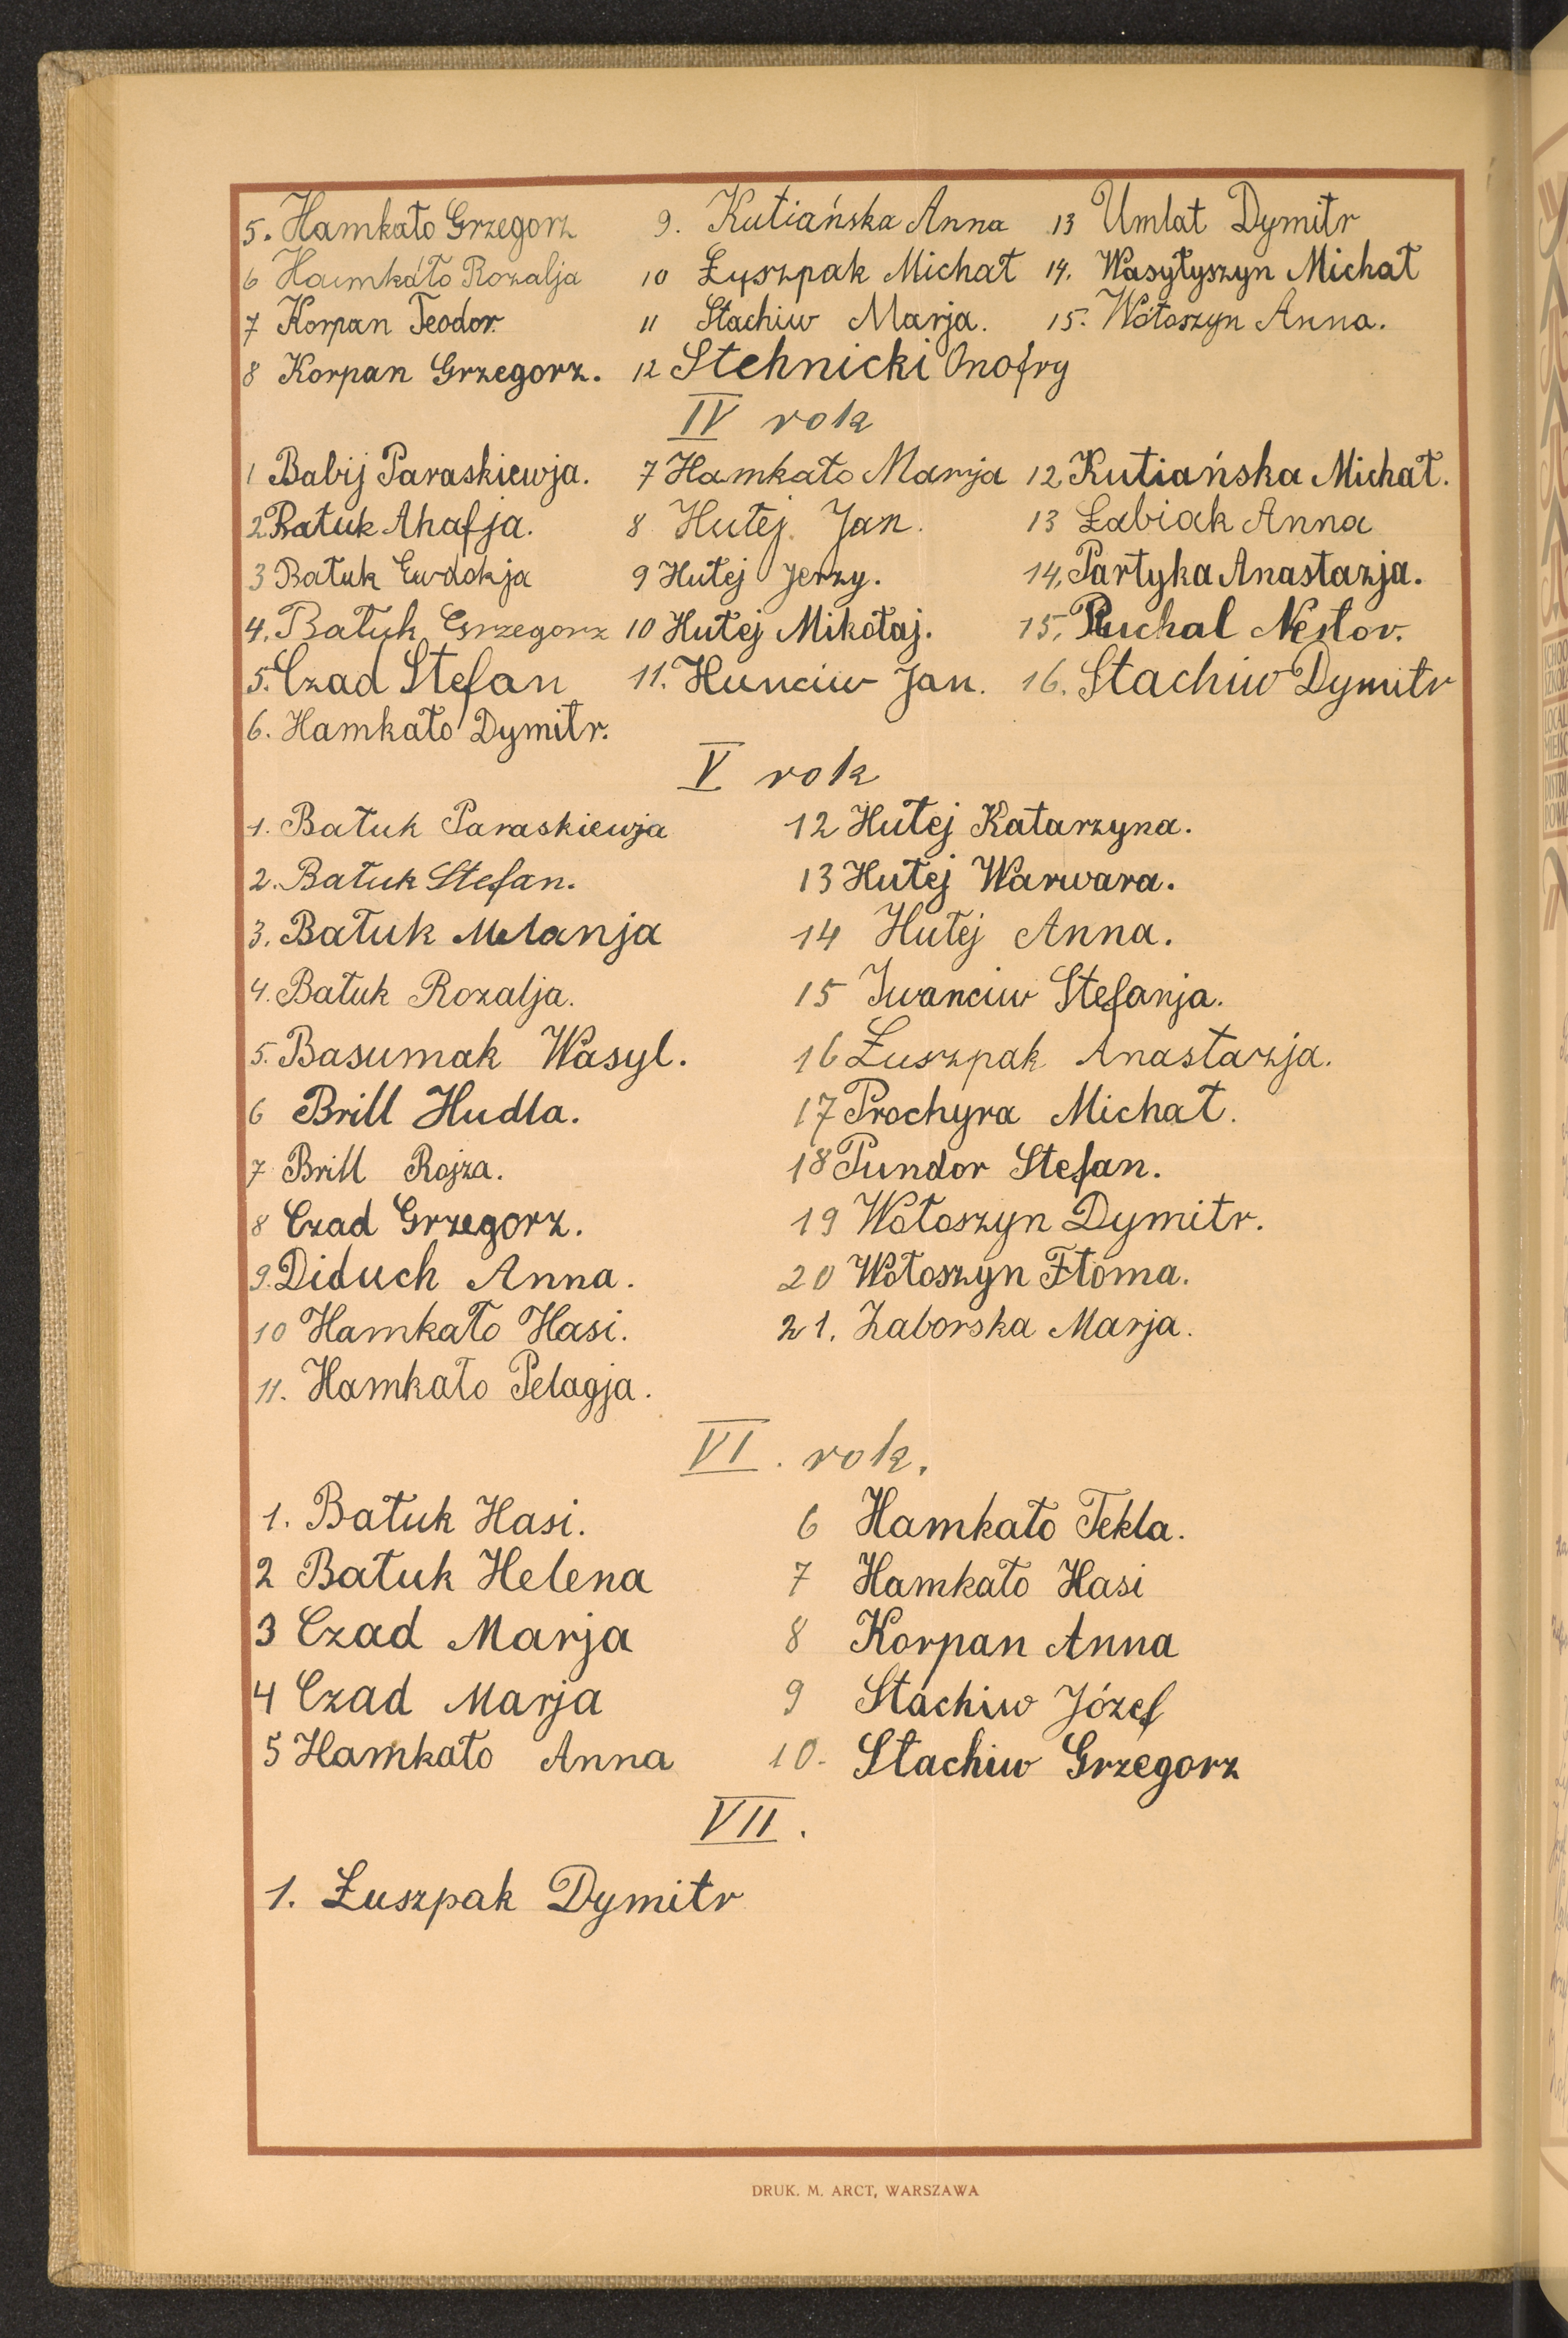 5. Hamkało Grzegorz 9. Kutiańska Anna 13 Umlat Dymitr
6 Hamkało Rozalja 10 Łyszpak Michał 14. Wasyłyszyn Michał
7 Korpan Teodor. 11 Stachiw Marja. 15. Wołoszyn Anna.
8 Korpan Grzegorz. 12 Stehnicki Onofry
IV rok
1 Babij Paraskiewja. 7 Hamkało Marja 12 Kutiańska Michał.
2 Batuk Ahafja. 8 Hułej Jan. 13 Łabiak Anna
3 Batuk Ewdokja 9 Hułej Jerzy. 14. Partyka Anastazja.
4. Batuk Grzegorz 10 Hułej Mikołaj. 15. Puchal Nestor.
5. Czad Stefan 11. Hunciw Jan. 16. Stachiw Dymitr
6. Hamkało Dymitr.
V rok
1. Bałuk Paraskiewja 12 Hułej Katarzyna.
2. Bałuk Stefan. 13 Hułej Warwara.
3. Bałuk Melanja 14 Hułej Anna.
4. Bałuk Rozalja. 15 Iwanciw Stefanja.
5. Basumak Wasyl. 16 Łuszpak Anastazja.
6 Brill Hudla. 17 Prochyra Michał.
7 Brill Rojza. 18 Pundor Stefan.
8 Czad Grzegorz. 19 Wołoszyn Dymitr.
9. Diduch Anna. 20 Wołoszyn Ftoma.
10 Hamkało Hasi. 21. Zaborska Marja.
11. Hamkało Pelagja.
VI. rok.
1. Bałuk Hasi. 6 Hamkało Tekla.
2 Bałuk Helena 7 Hamkało Hasi
3 Czad Marja 8 Korpan Anna
4 Czad Marja 9 Stachiw Józef
5 Hamkało Anna 10. Stachiw Grzegorz
VII.
1. Łuszpak Dymitr
DRUK. M. ARCT, WARSZAWA